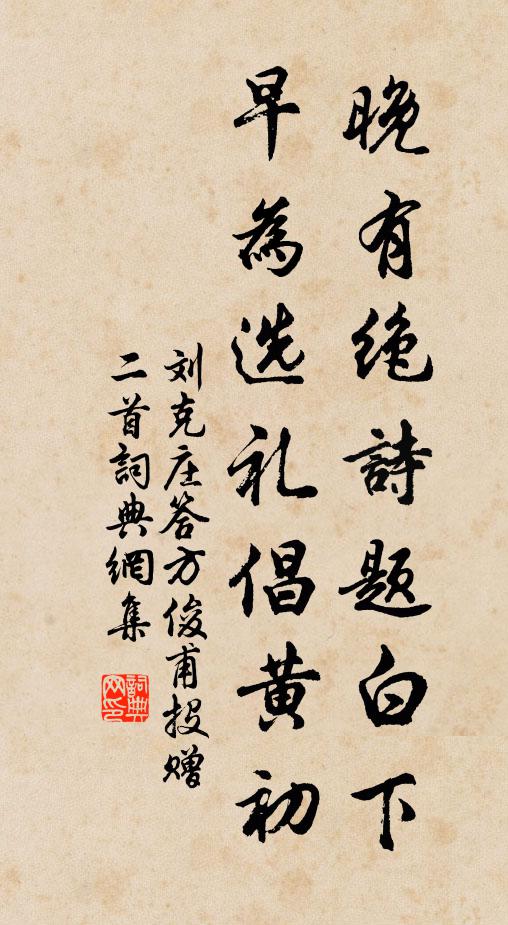 晚有绝詩题白下
早為选礼倡黄初
刘克庄答方俊甫投赠
二首詞典網集
詞典網印